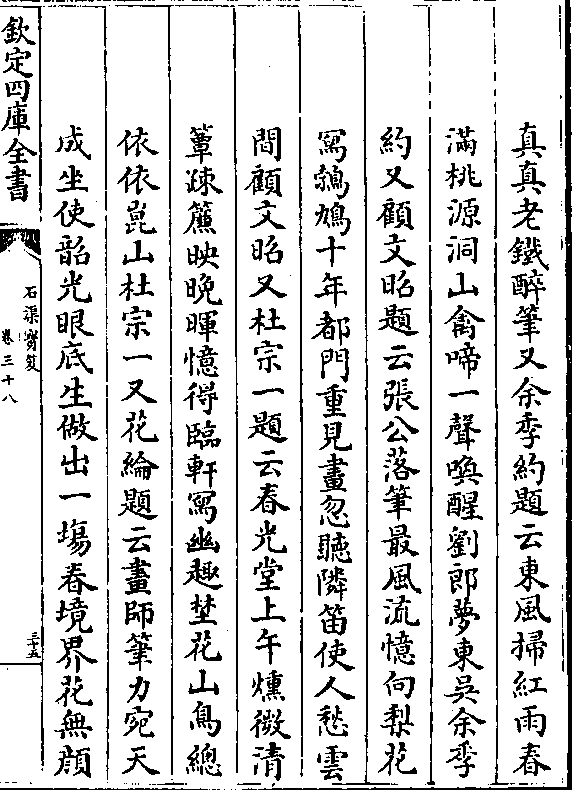 真真老鐵醉筆又余季約題云東風掃紅雨春
滿桃源洞山禽啼一聲喚醒劉郎夢東吳余季
約又顧文昭題云張公落筆最風流憶向梨花
寫鵓鳩十年都門重見畫忽聽隣笛使人愁雲
間顧文昭又杜宗一題云春光堂上午燻微清
簟疎簾映晚暉憶得臨軒寫幽趣埜花山鳥總
依依崑山杜宗一又花綸題云畫師筆力宛天
成坐使韶光眼底生做出一塲春境界花無顔
欽定四庫全書
石渠寳笈
卷三十八
三十五